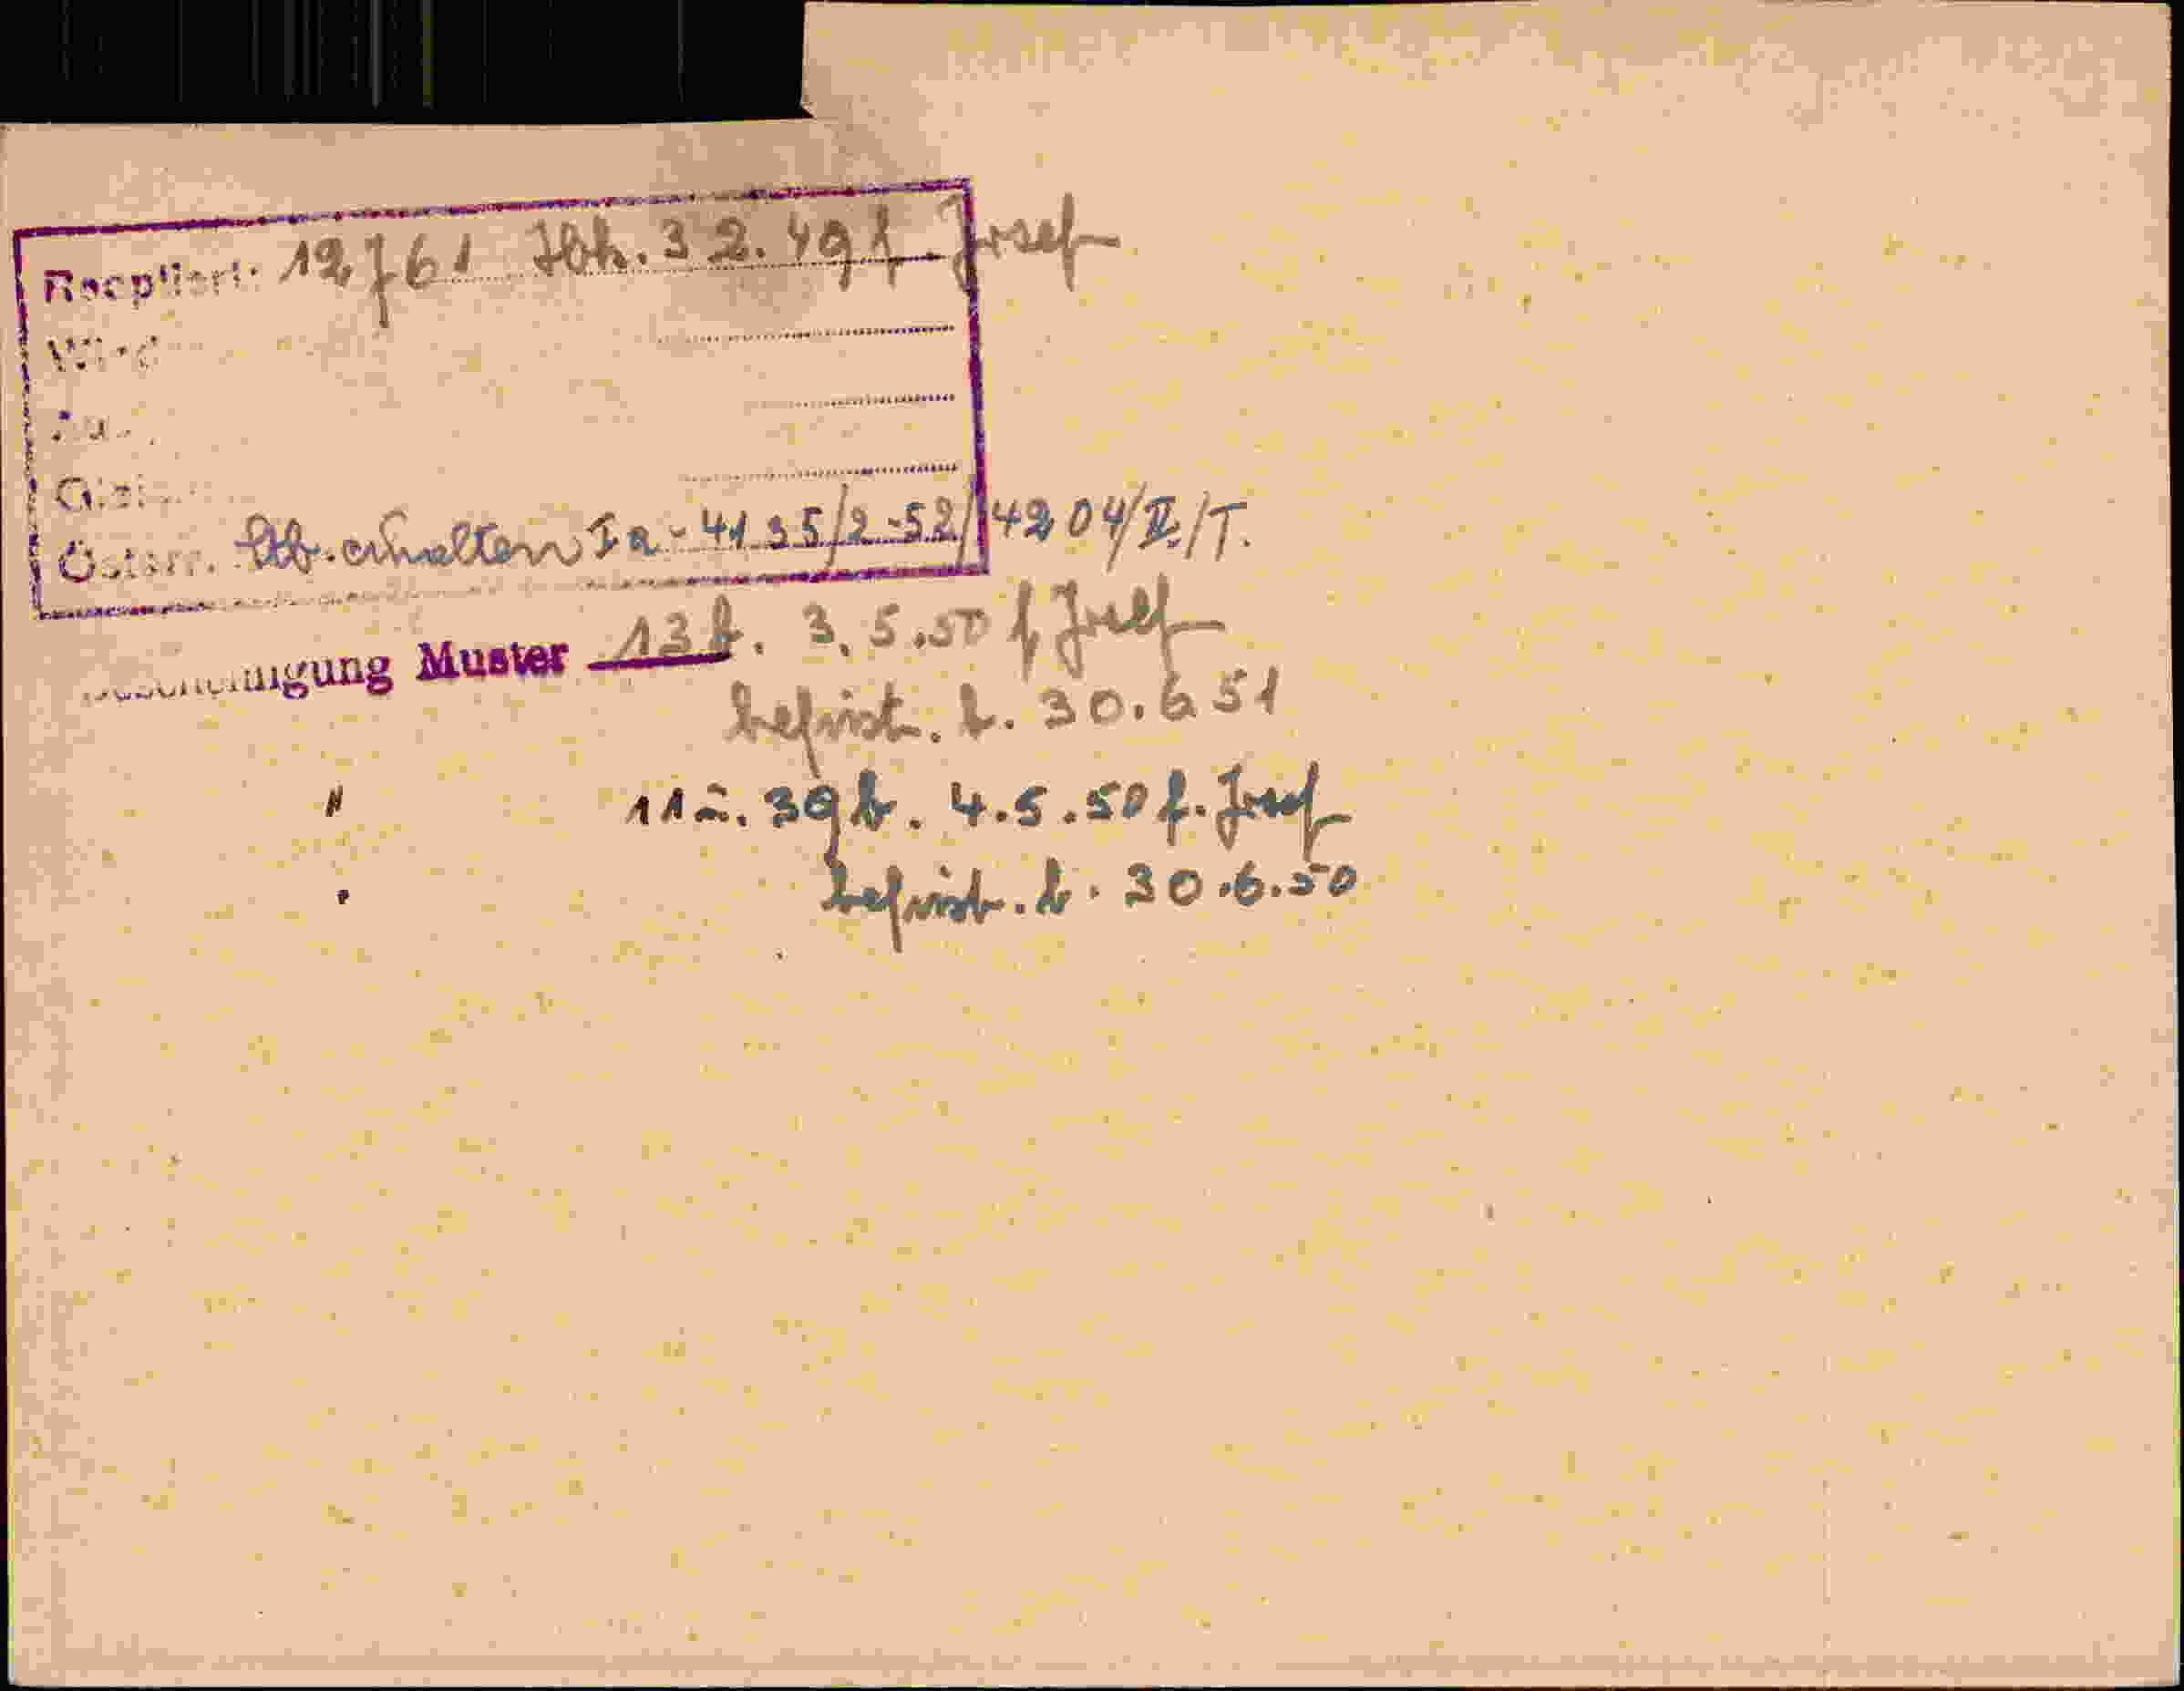 Reeptiert: 12761 Ibk. 3 2. 49 f. Josef
Wird
Österr. Stb. erhalten Ia-4135/2-52/4204/II/T.
Bescheinigung Muster 13 b. 3. 5. 50 f Josef
befrist. b. 30. 6 51
" 11 a. 39 b. 4. 5. 50 f. Josef
befrist. b. 30. 6. 50